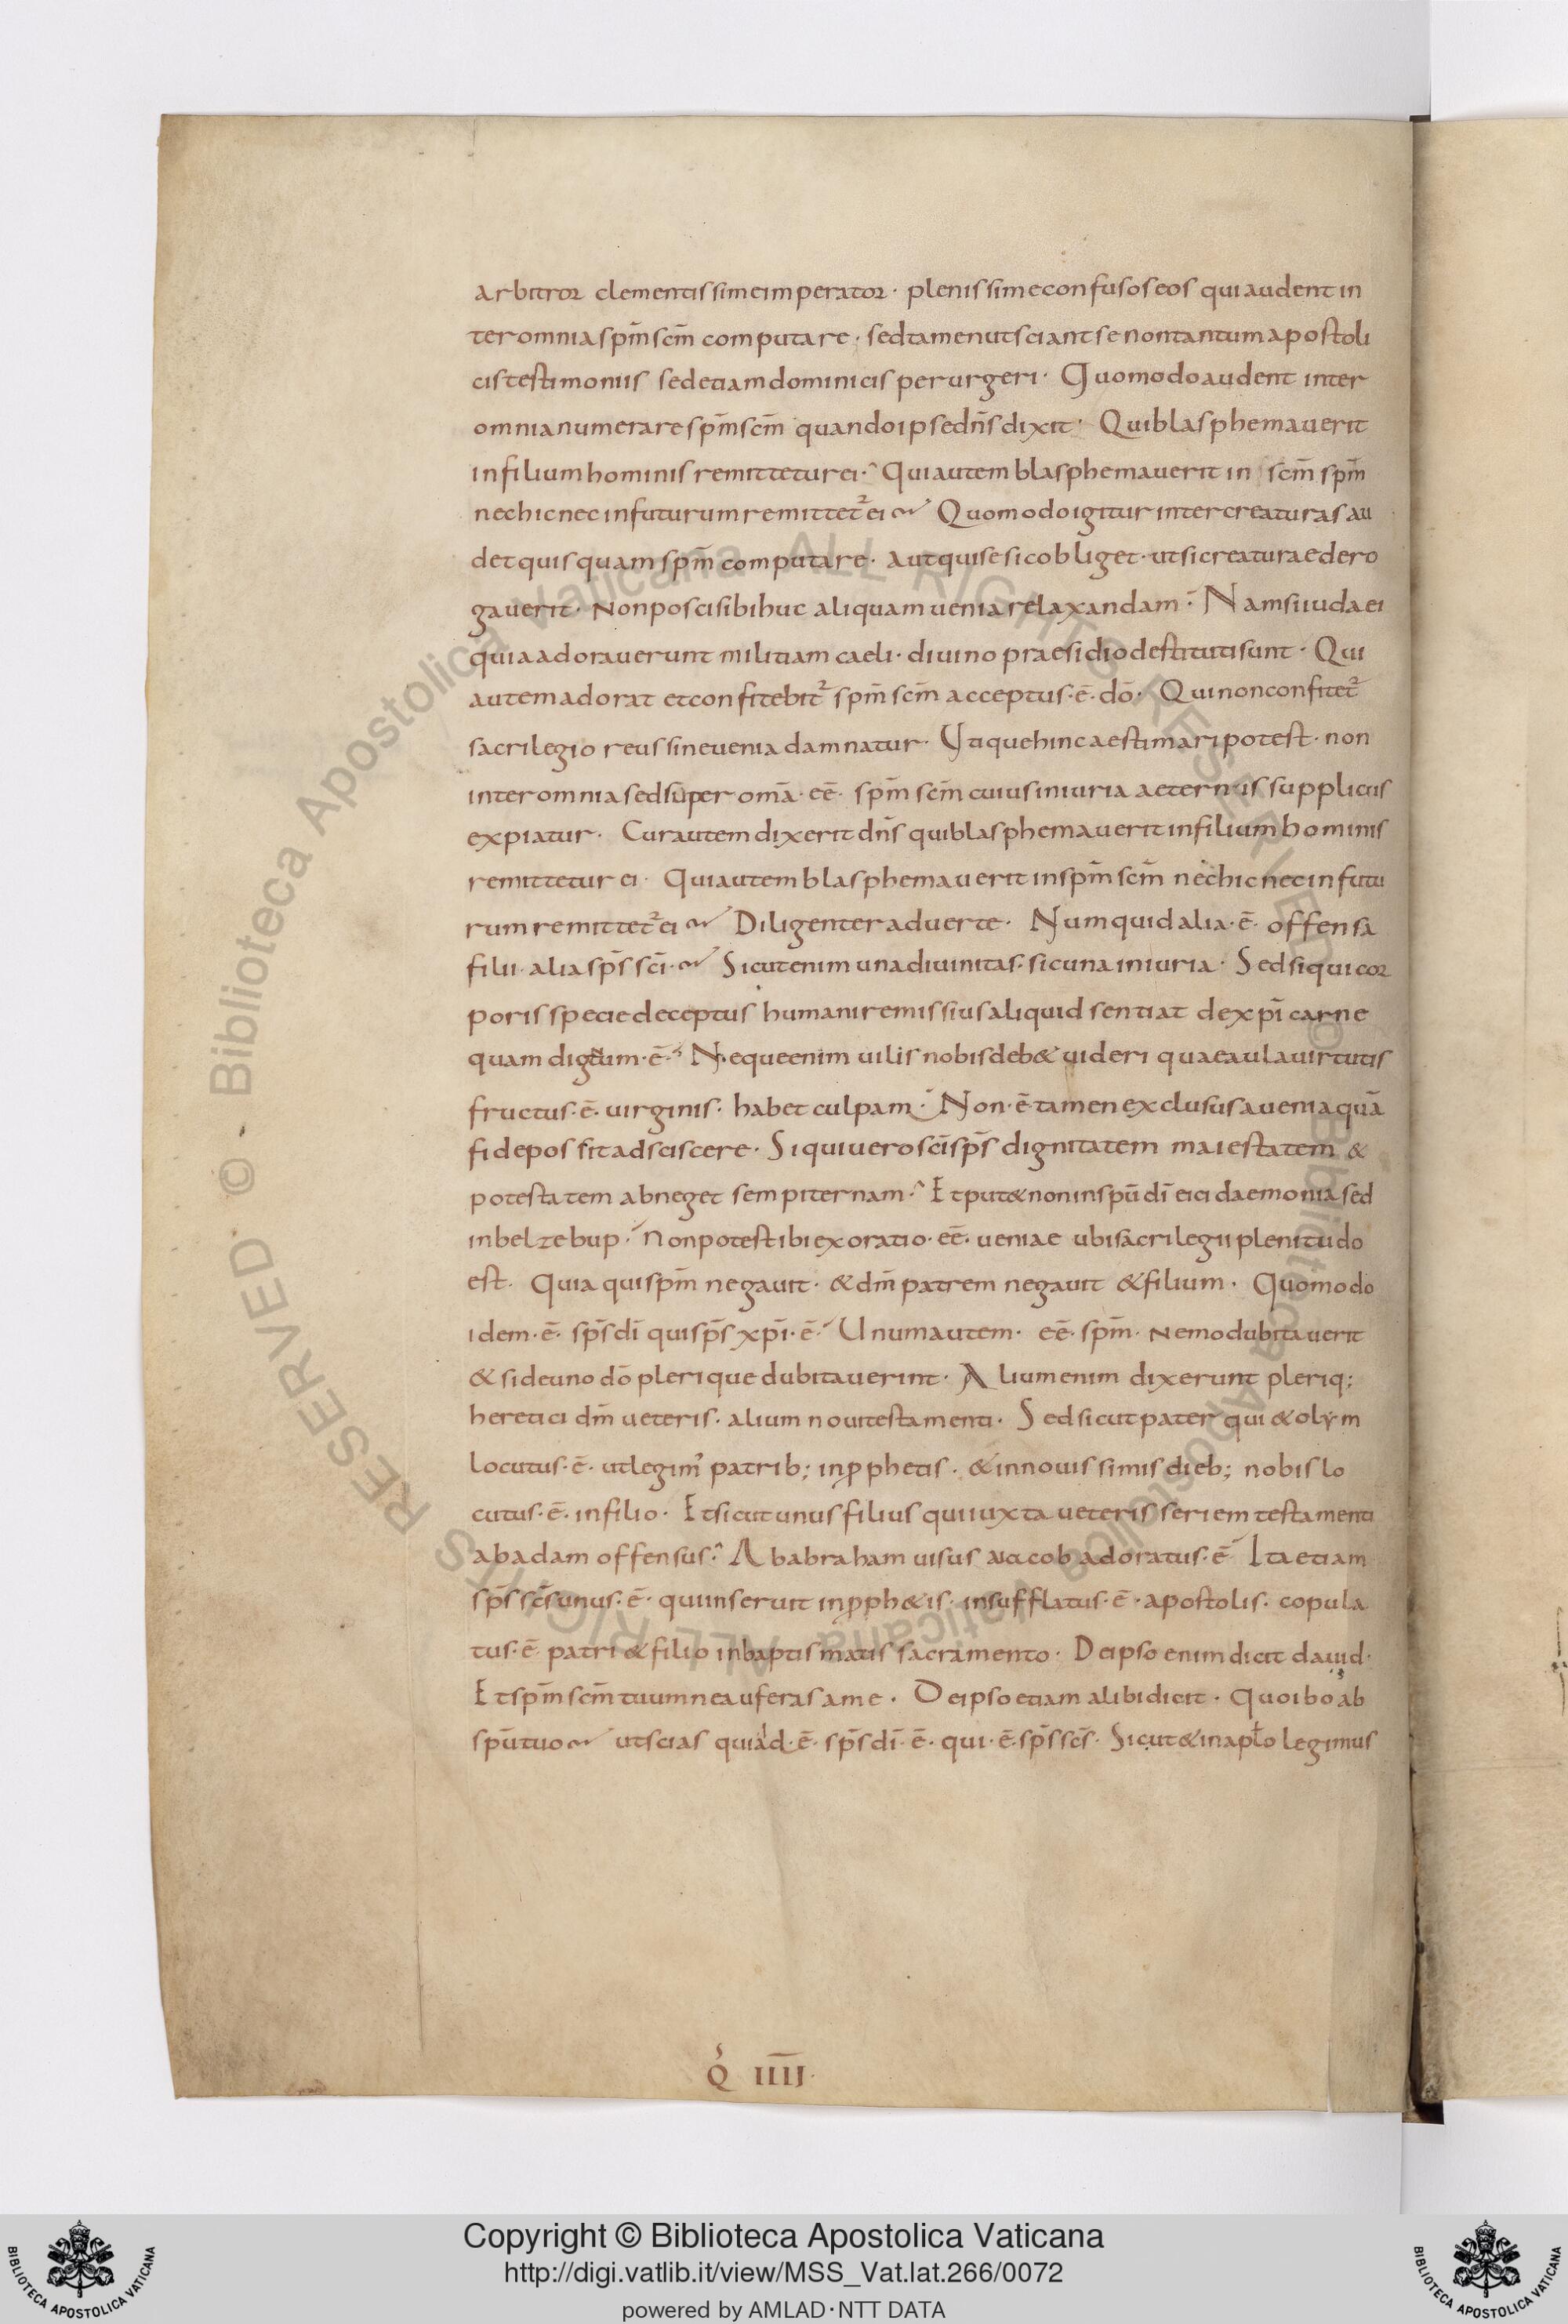 arbitror clementissime imperator · plenissime confusos eos qui audent in
ter omnia spm̄ scm̄ computare · sed tamen ut sciant se non tantum apostoli
cis testimoniis sed etiam dominicis perurgeri · Quomodo audent inter
omnia numerare spm̄ scm̄ quando ipse dn̄s dixit · Qui blasphemaverit
in filium hominis remittetur ei · Qui autem blasphemaverit in scm̄ spm̄
nec hic nec in futurum remittet᷑ ei Quomodo igitur inter creaturas au
det quisquam spm̄ computare · aut quis e sic obliget · ut si creaturae dero
gaverit · Non posci sibi huc aliquam venia relaxandam · Nam si iudaei
quia adoraverunt militiam caeli · divino praesidio destituti sunt · Qui
autem adorat et confitebit᷑ spm̄ scm̄ acceptus · ē · dō · Qui non confitet᷑
sacrilegio reus sine venia damnatur · Utique hinc aestimari potest · non
inter omnia sed super omā · eē · spm̄ scm̄ cuius iniuria aeternis suppliciis
expiatur · Cur autem dixerit dn̄s qui blasphemaverit in filium hominis
remittetur ei · Qui autem blasphemaverit in spm̄ scm̄ nec hic nec in futu
rum remittet᷑ ei Diligenter adverte · Numquid alia · ē · offensa
filii · alia sps̄ scī · Sicut enim una divinitas · sic una iniuria · Sed si qui cor
poris specie deceptus humani remissius aliquid sentiat de xpī carne
quam dignum · ē · Neque enim vilis nobis deb& videri quae aula virtutis
fructus · ē · virginis · habet culpam · Non · ē tamen exclusus a venia quā
fide possit adsciscere · Si qui vero scī sps̄ dignitatem maiestatem &
potestatem abneget sempiternam · Et put& non in spū dī eici daemonia sed
in belzebup · Non potest ibi exoratio · eē · veniae ubi sacrilegii plenitudo
est · Quia qui spm̄ negavit · & dm̄ patrem negavit & filium · Quomodo
idem · ē · sps̄ dī qui sps̄ xpī · ē · Unum autem · eē · spm̄ · Nemo dubitaverit
& si de uno dō plerique dubitaverint · Alium enim dixerunt pleriq;
heretici dm̄ veteris · alium novi testamenti · Sed sicut pater qui & olym
locutus · ē · ut legim᾽ patrib; in ꝓphetis · & in novissimis dieb; nobis lo
cutus · ē · in filio · Et sicut unus filius qui iuxta veteris seriem testamenti
ab adam offensus · Ab abraham visus a iacob adoratus · ē Ita etiam
sps̄ scs̄ unus · ē · qui inseruit in ꝓph&is · insufflatus · ē · apostolis · copula
tus · ē patri & filio in baptismatis sacramento · De ipso enim dicit david ·
Et spm̄ scm̄ tuum ne auferas a me · De ipso etiam alibi dicit · Quo ibo ab
spū tuo ut scias quia id · ē · sps̄ dī · ē · qui · ē · sps̄ scs̄ · Sicut & in aplo legimus
Q᾽ IIII ·
Copyright © Biblioteca Apostolica Vaticana
http://digi.vatlib.it/view/MSS_Vat.lat.266/0072
powered by AMLAD·NTT DATA
BIBLIOTECA APOSTOLICA VATICANA
BIBLIOTECA APOSTOLICA VATICANA
© Biblioteca Apostolica Vaticana ALL RIGHTS RESERVED
© Biblioteca Apostolica Vaticana ALL RIGHTS RESERVED